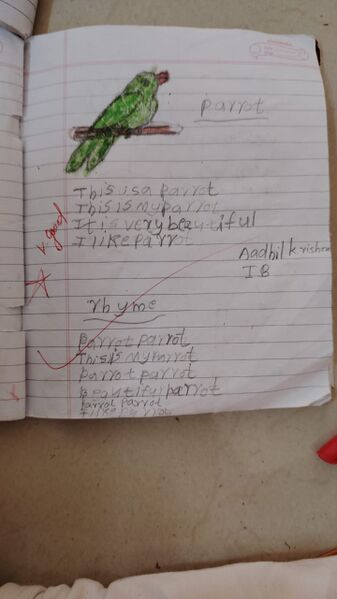 Parrot
This is a parrot
This is my parrot
It is very beautiful
I like parrot
v. good
Aadhil krishna
I B
rhyme
Parrot parrot
This is my parrot
parrot parrot
beautiful parrot
parrot parrot
I like parrot